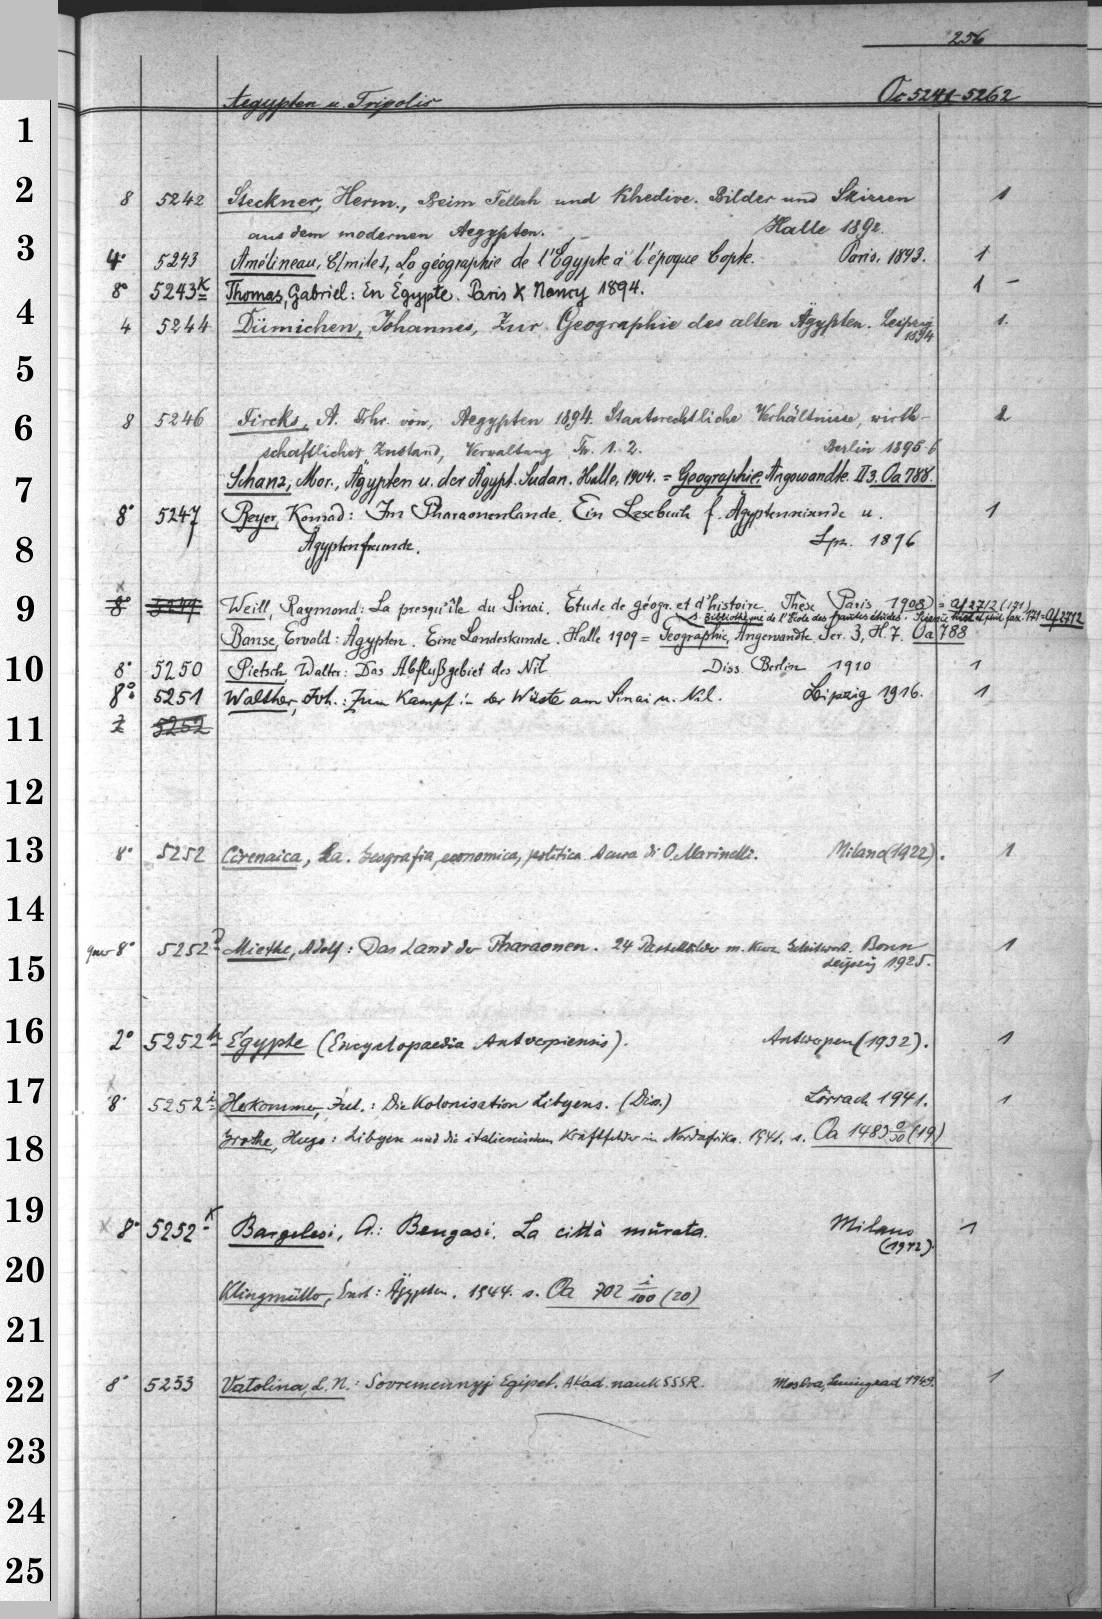 256
Aegypten u. Tripolis Oc 5241-5262
1
2
8 5242 Steckner, Herm., Beim Fellah und Khedive. Bilder und Skizzen 1
aus dem modernen Aegypten. Halle 1892.
3
4° 5243 Amélineau, E[mile], La géographie de l'Égypte à l'époque Copte. Paris. 1893. 1
8° 5243K Thomas, Gabriel: En Égypte. Paris & Nancy 1894. 1 –
4
4 5244 Dümichen, Johannes, Zur Geographie des alten Ägypten. Leipzig 1.
1894
5
6
8 5246 Fircks, A. Frhr. von, Aegypten 1894. Staatsrechtliche Verhältnisse, wirth- 2
schaftlicher Zustand, Verwaltung Th. 1. 2. Berlin 1895-6
7
Schanz, Mor., Ägypten u. der Ägypt. Sudan. Halle, 1904. = Geographie, Angewandte. II 3. Oa 788.
8° 5247 Beyer, Konrad: Im Pharaonenlande. Ein Lesebuch f. Ägyptenreisende u. 1
8
Ägyptenfreunde. Lpz. 1896
9
8° 5249 Weill, Raymond: La presqu'île du Sinai. Étude de géogr. et d'histoire. Thèse Paris 1908) = Af 2712 (171)
s. Bibliothèque de l'École des hautes études. Science hist. et phil. fasc. 171 = Af 2712
Banse, Ewald: Ägypten. Eine Landeskunde. Halle 1909 = Geographie, Angewandte Ser. 3, H. 7. Oa 788
10
8° 5250 Pietsch, Walter: Das Abflußgebiet des Nil Diss. Berlin 1910 1
8° 5251 Walther, Joh.: Zum Kampf in der Wüste am Sinai u. Nil. Leipzig 1916. 1
11
2 5252
12
13
8° 5252 Cirenaica, La. Geografia, economica, politica. A cura di O. Marinelli. Milano (1922). 1
14
quer 8° 5252 Miethe, Adolf: Das Land der Pharaonen. 24 Pastellbilder m. kurz. Bonn 1
15
Leipzig 1925.
16
2° 5252h Égypte (Encyclopaedia Antverpiensis). Antwerpen (1932). 1
17
8° 5252i Herkommer, Jul.: Die Kolonisation Libyens. (Diss.) Lörrach 1941. 1
18
Grothe, Hugo: Libyen und die italienischen Kraftfelder in Nordafrika. 1941. s. Oa 1483 a/30 (19)
19
8° 5252K Bargelesi, A.: Bengasi. La città murata. Milano 1
(1942)
20
Klingmüller, Ernst: Ägypten. 1944. s. Oa 702 i/100 (20)
21
22
8° 5253 Vatolina, L. N.: Sovremennyj Egipet. Akad. nauk SSSR. Moskva, Leningrad 1949. 1
23
24
25